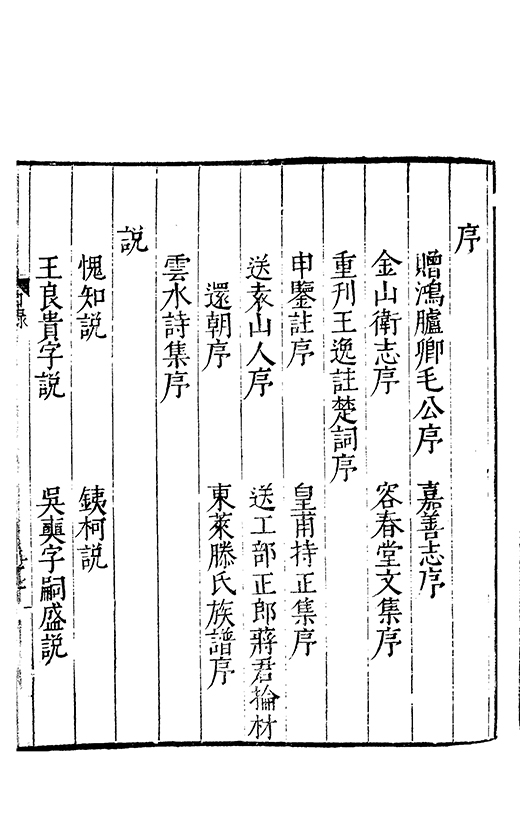 序
贈鴻臚卿毛公序　嘉善志序
金山衛志序　容春堂文集序
重刊王逸註楚詞序
申鑒註序　皇甫持正集序
送袁山人序　送工部正郎蔣君掄材
還朝序　東萊滕氏族譜序
雲水詩集序
説
愧知説　銕柯説
王良貴字説　吳奭字嗣盛説